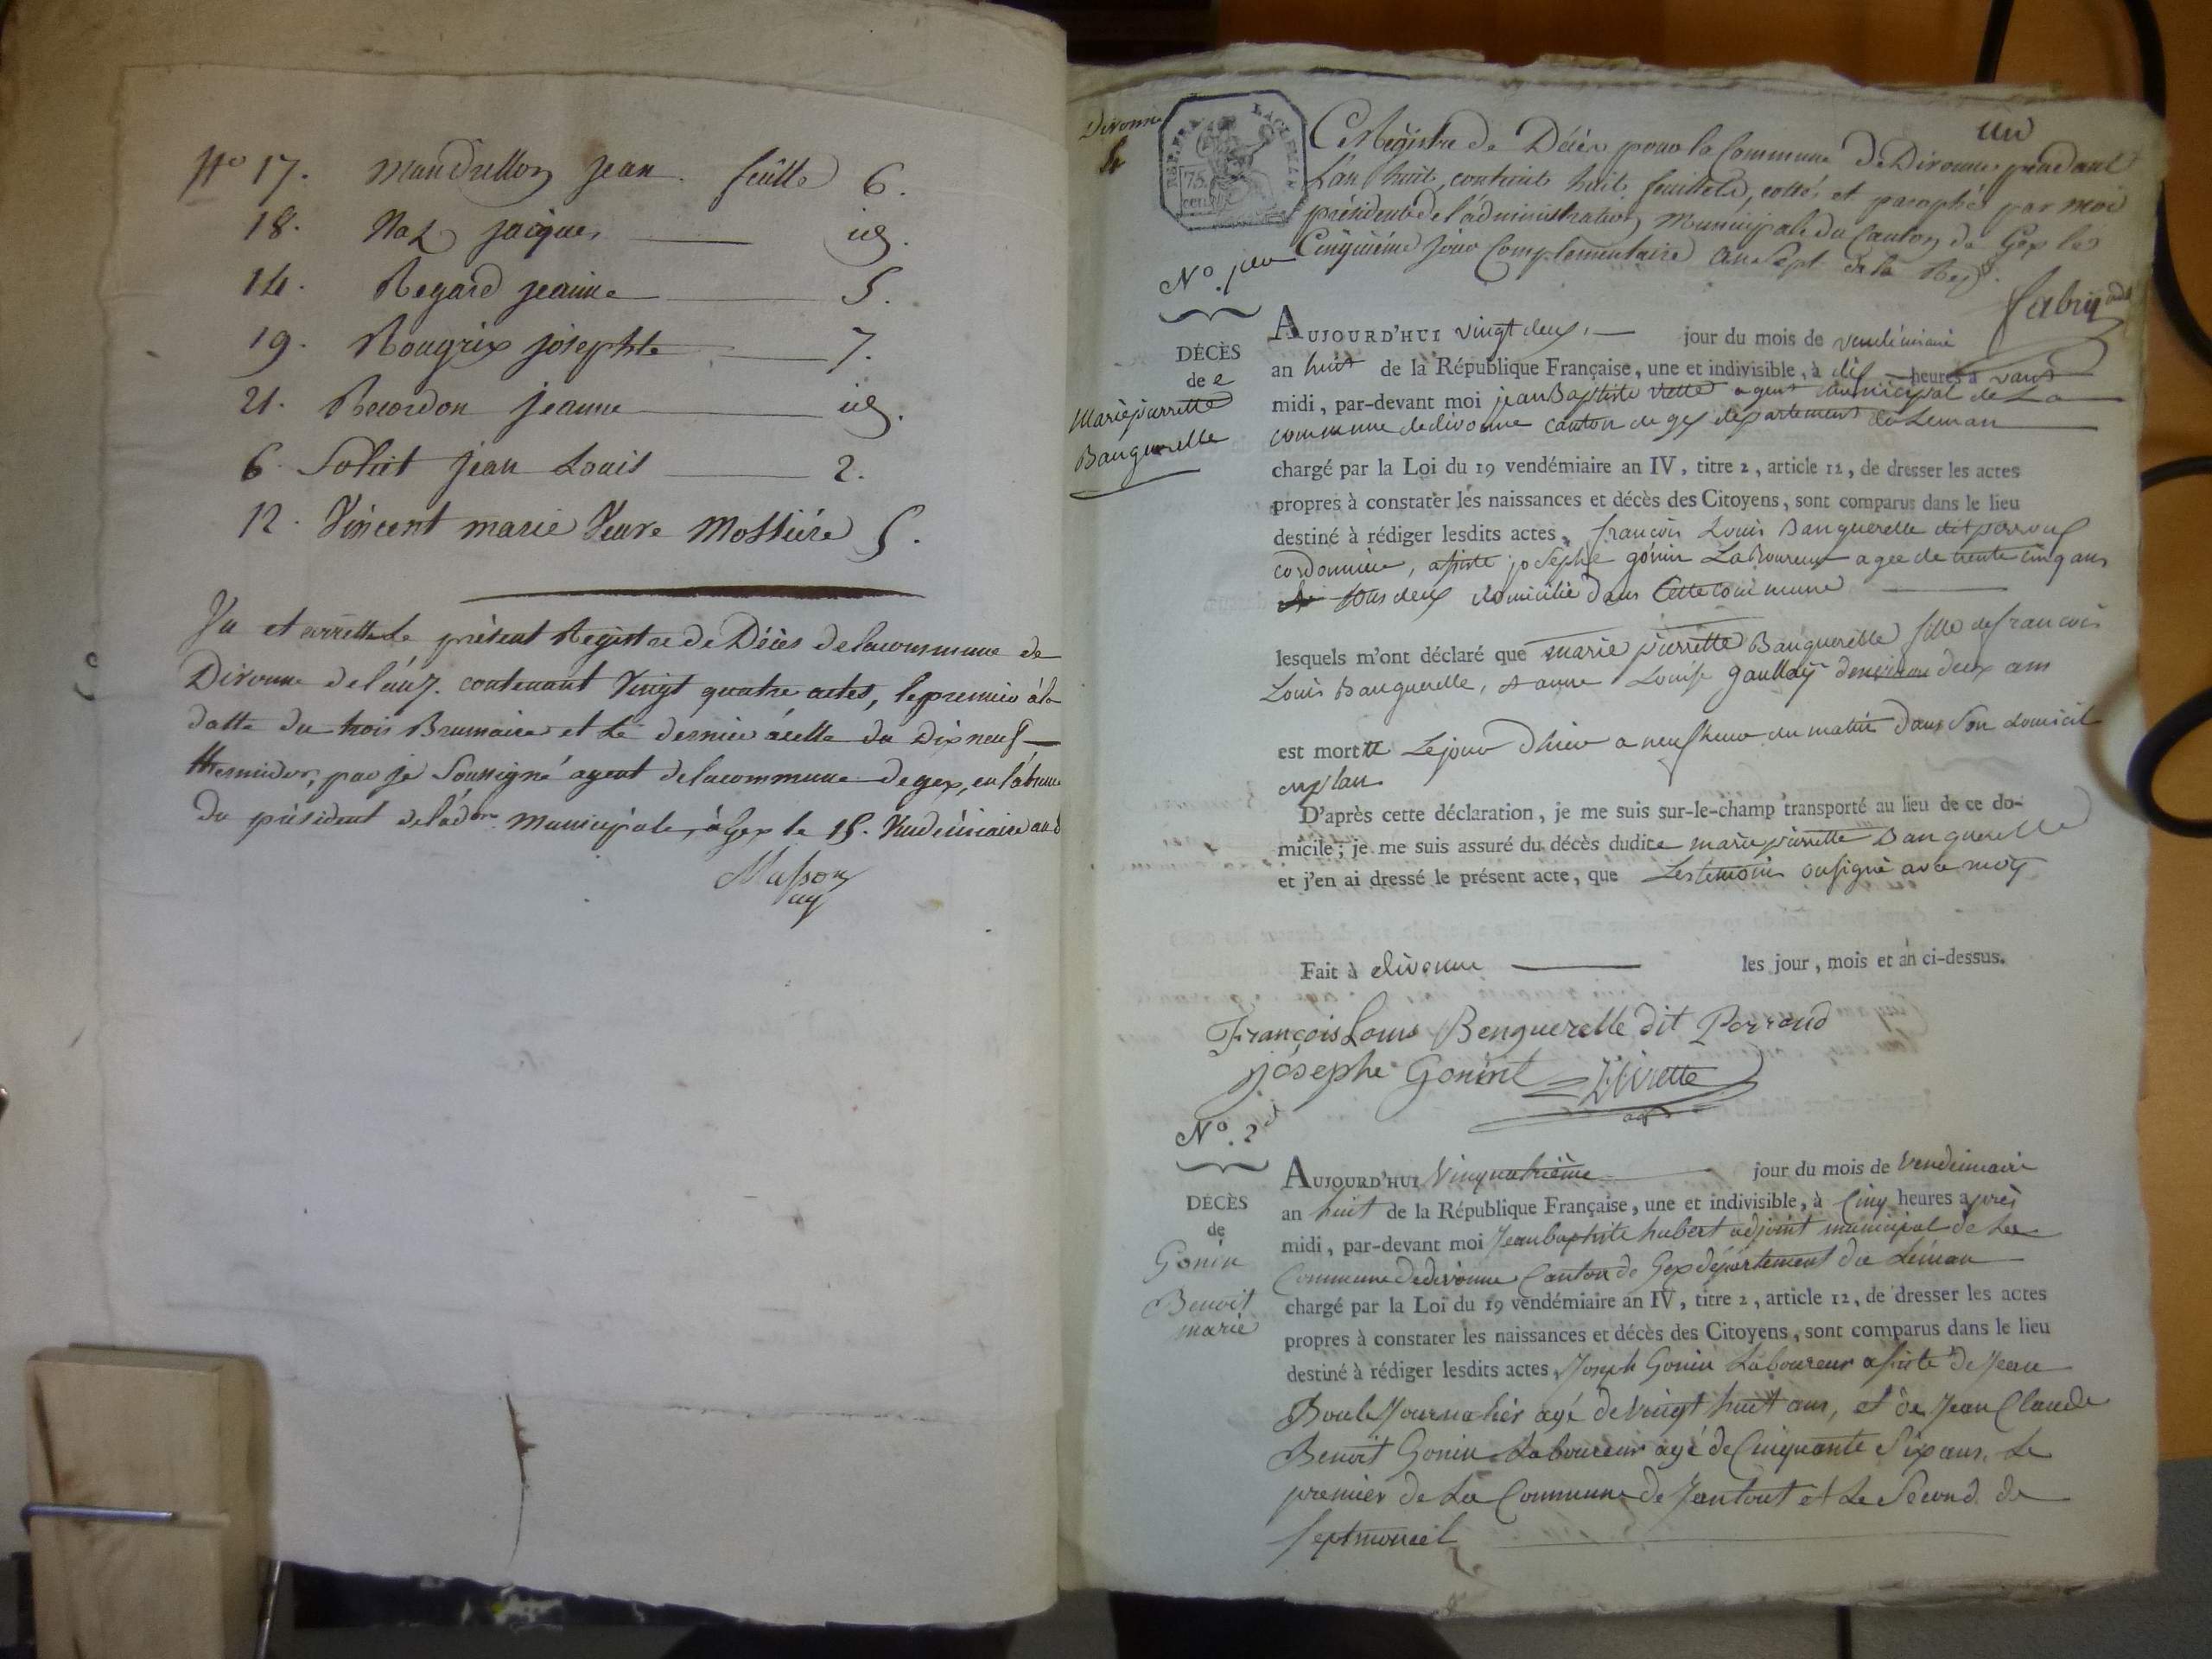 No 17. Mandrillon jean feuille 6.
18. Naz jacques id.
14. Regard jeanne 5.
19. Rougrix josephte 7.
21. Recordon jeanne id.
6. Soliat jean Louis 2.
12. Vincent marie Veuve Mossiére 5.
Vu et arretté le présent Registre de Décès de la commune de
Divonne de l'an 7. contenant Vingt quatre actes, le premier à la
datte du trois Brumaire et le dernier à celle du Dix neuf
thermidor, par je Soussigné agent de la commune de gex, en l'absence
du président de l'ad.on Municipale, à Gex le 15. Vendémiaire an 8
Masson
ag
Divonne
un
RÉP. FRA.
75.
cen.
Ce Registre de Décès pour la Commune de Divonne pendant
l'an huit, contient huit feuillets, cottés et paraphés par moi
président de l'administration Municipale du Canton de Gex les
Cinquième jour Complementaire an Sept de la Rep.
Fabry
No. per
DÉCÈS
de e
Marie pierrette
Banguerelle
AUJOURD'HUI vingt deux, jour du mois de vendémiaire
an huit de la République Française, une et indivisible, à dix heures a vant
midi, par-devant moi jean Baptiste Virette agent municipal de La
commune de divonne canton de gex département du Leman
chargé par la Loi du 19 vendémiaire an IV, titre 2, article 12, de dresser les actes
propres à constater les naissances et décès des Citoyens, sont comparus dans le lieu
destiné à rédiger lesdits actes, francois Louis Banguerelle dit perroud
cordonnier, assisté josephe gonin Laboureur agee de trente cinq ans
tous deux domicilié dans Cette commune
lesquels m'ont déclaré que marie pierrette Banguerelle fille de francois
Louis Banguerelle, & anne Louise gaullay denviron deux ans
est mortte Le jour dhier a neuf heure du matin dans Son domicil
en plan
D'après cette déclaration, je me suis sur-le-champ transporté au lieu de ce do-
micile; je me suis assuré du décès dudite marie pierrette Banguerelle
et j'en ai dressé le présent acte, que Les temoins on signé avec moy
Fait à divonne les jour, mois et an ci-dessus.
François Louis Benguerelle dit Perroud
josephe Gonint Virette
ag
No. 2d
DÉCÈS
de
Gonin
Benoit
marie
AUJOURD'HUI Vinquatrième jour du mois de Vendeimaire
an huit de la République Française, une et indivisible, à Cinq heures après
midi, par-devant moi Jean baptiste hubert adjoint municipal de La
Commune de divonne Canton de Gex département du Léman
chargé par la Loi du 19 vendémiaire an IV, titre 2, article 12, de dresser les actes
propres à constater les naissances et décès des Citoyens, sont comparus dans le lieu
destiné à rédiger lesdits actes, Joseph Gonin Laboureur assisté de Jean
Boule Journalier agé de Vingt huit ans, et de Jean Claude
Benoit Gonin Laboureur agé de Cinquante Six ans. Le
premier de La Commune de Jantout et Le Second de
Septmoncel